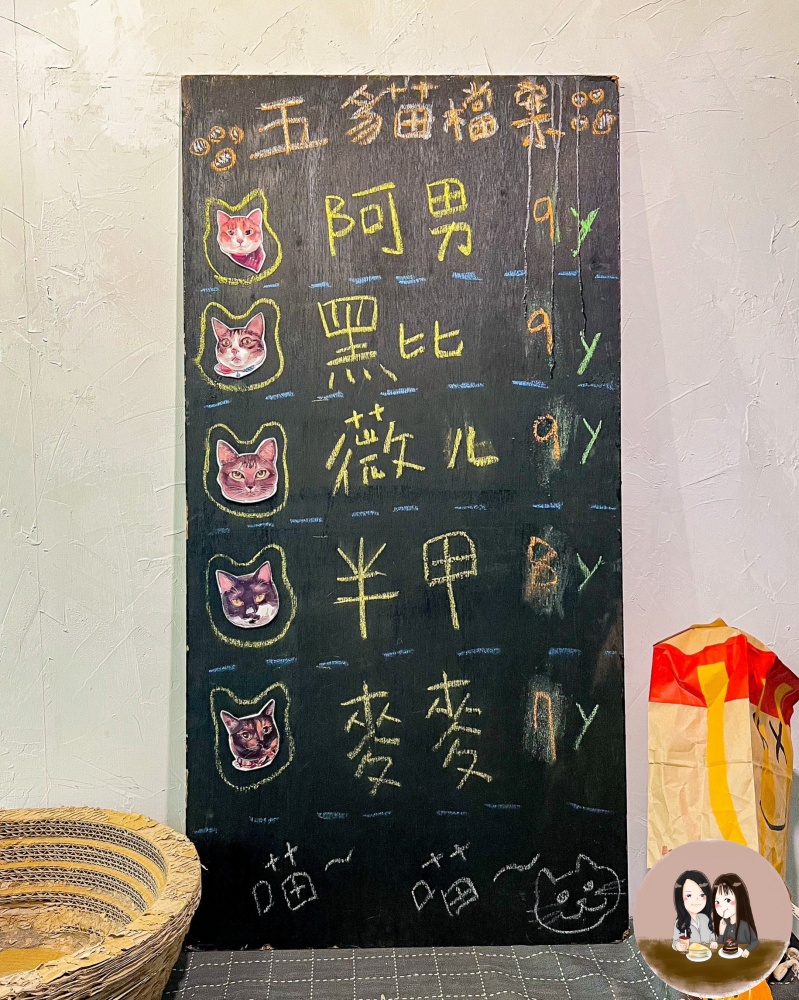 五貓檔案
阿男 9y
黑比 9y
薇ㄦ 9y
半甲 8y
麥麥 7y
喵~ 喵~